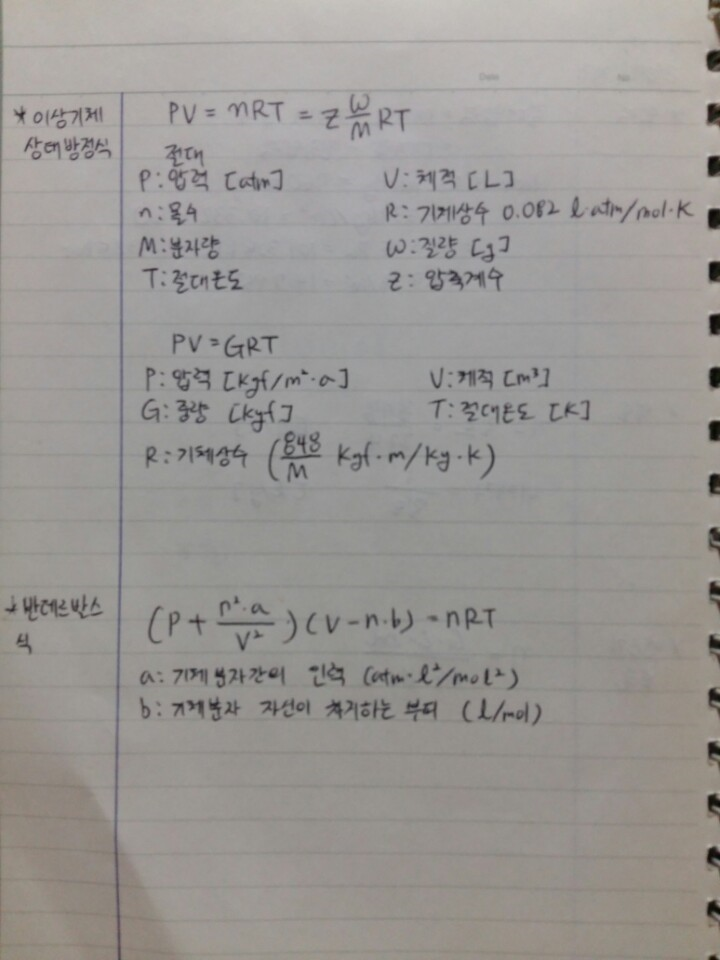 Date No
* 이상기체
상태방정식
PV = nRT = z w/M RT
절대
P: 압력 [atm] V: 체적 [L]
n: 몰수 R: 기체상수 0.082 l·atm/mol·K
M: 분자량 w: 질량 [g]
T: 절대온도 z: 압축계수
PV = GRT
P: 압력 [kgf/m²·a] V: 체적 [m³]
G: 중량 [kgf] T: 절대온도 [K]
R: 기체상수 (848/M kgf·m/kg·K)
* 반데르발스
식
(P + n²·a/V²)(V - n·b) = nRT
a: 기체분자간의 인력 (atm·l²/mol²)
b: 기체분자 자신이 차지하는 부피 (l/mol)